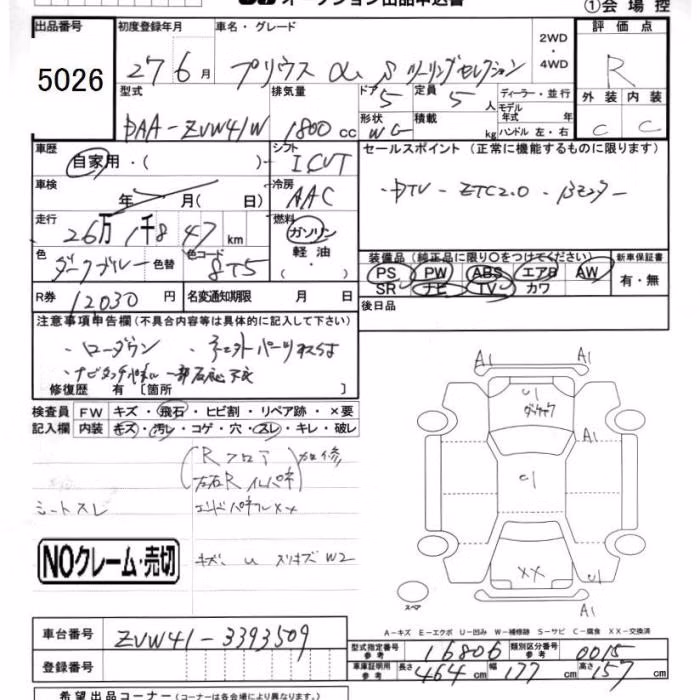 オークション出品申込書 ①会場控
出品番号 初度登録年月 車名・グレード 2WD・4WD 評価点
5026 27 6月 プリウス α S ツーリングセレクション R
型式 排気量 ドア 5 定員 5人 ディーラー・並行 外装 内装
DAA-ZVW41W 1800cc 形状 WG 積載 kg モデル年式 年 ハンドル 左・右 C C
車歴 自家用・( ) シフト ICVT セールスポイント (正常に機能するものに限ります)
車検 年 月 (日) 冷房 AAC ・DTV ・ETC2.0
走行 26万1千847km 燃料 ガソリン 軽油・
色 ダークブルー 色替 色コード 8T5 装備品 (純正品に限り○をつけてください) 新車保証書
PS PW ABS エアB AW 有・無
SR ナビ TV カワ
R券 12030円 名変通知期限 月 日 後日品
注意事項申告欄 (不具合内容等は具体的に記入して下さい)
・ローダウン
・ナビタッチパネル一部反応不良
修復歴 有 [箇所 ]
検査員 FW キズ・飛石・ヒビ割・リペア跡・×要
記入欄 内装 キズ・汚レ・コゲ・穴・スレ・キレ・破レ
(Rフロア 加修
左右Rインパネ)
シートスレ エンドパネルXX
NOクレーム・売切 キズ U スリキズ W2
A1 A1
U
A1
U
XX U
スペア A1
A-キズ E-エクボ U-凹み W-補修跡 S-サビ C-腐食 XX-交換済
車台番号 ZVW41-3393509 型式指定番号 参考 16806 類別区分番号 参考 0015
登録番号 車庫証明用 参考 長さ 464cm 幅 177cm 高さ 157cm
希望出品コーナー (コーナーは各会場により異なります。)